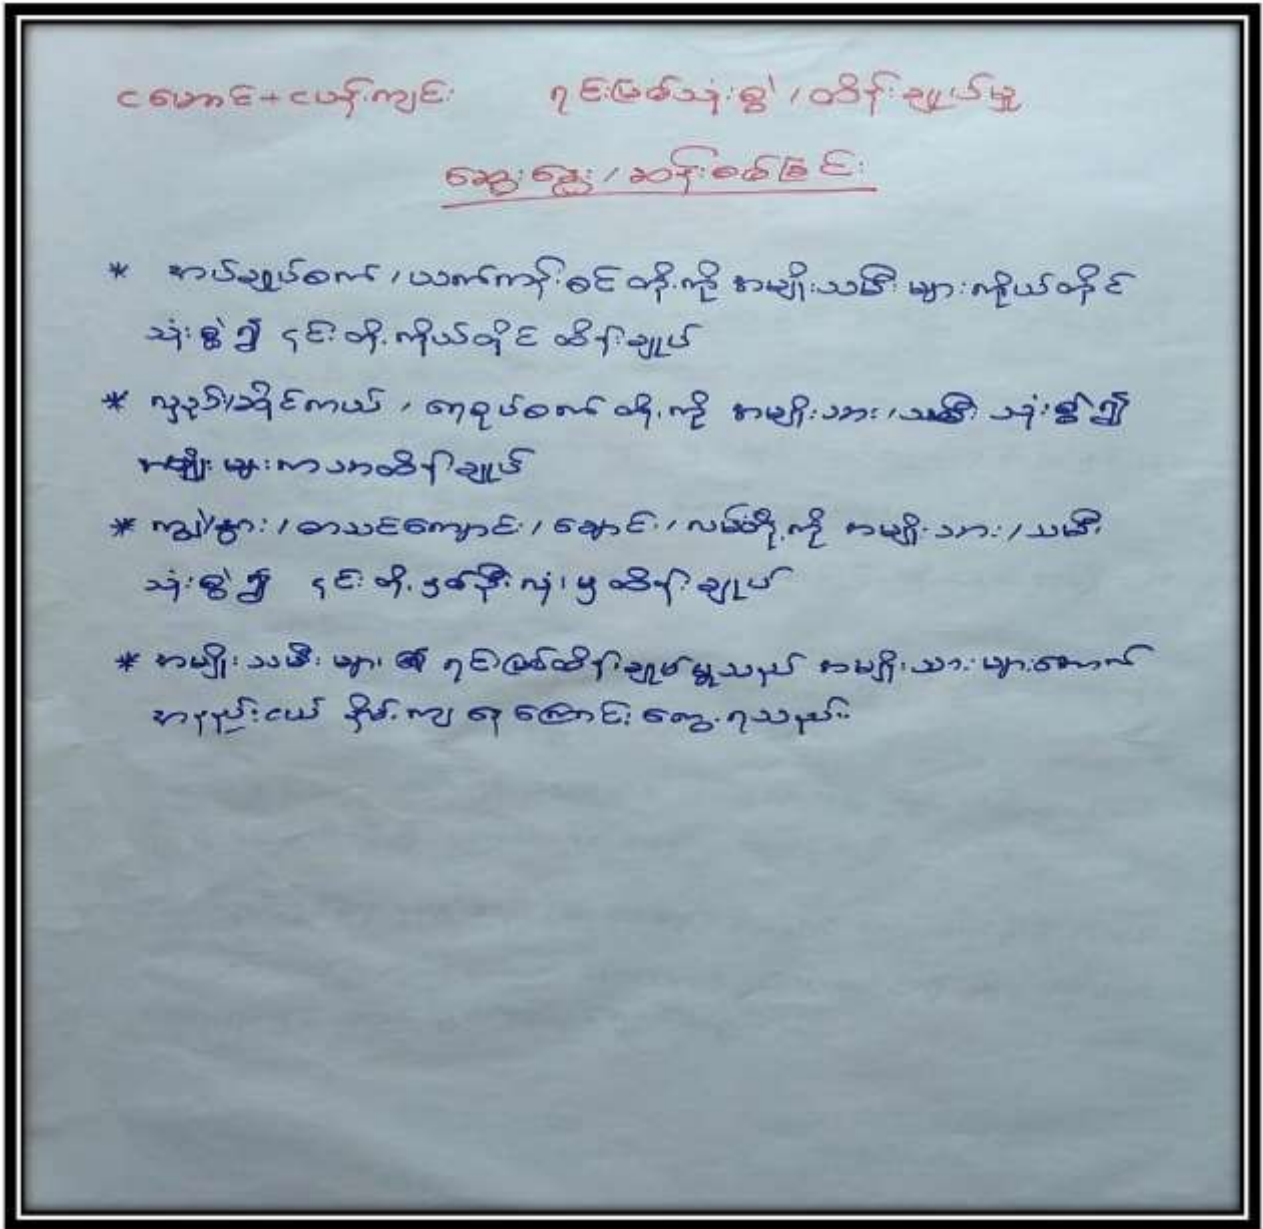 ငမောင်+ငယန်ကျင်း ရင်းမြစ်သုံးစွဲ/ထိန်းချုပ်မှု
ဆွေးနွေး/ဆန်းစစ်ခြင်း
* အပ်ချုပ်စက်/ယက်ကန်းစင်တို့ကို အမျိုးသမီးများကိုယ်တိုင်
သုံးစွဲ၍ ၎င်းတို့ကိုယ်တိုင် ထိန်းချုပ်
* လှည်း/ဆိုင်ကယ်/ရေစုပ်စက်တို့ကို အမျိုးသား/သမီး သုံးစွဲ၍
များကသာထိန်းချုပ်
* ကျွဲ/နွား/စာသင်ကျောင်း/ချောင်း/လမ်းတို့ကို အမျိုးသား/သမီး
သုံးစွဲ၍ ၎င်းတို့နှစ်ဦးလုံးမှ ထိန်းချုပ်
* အမျိုးသမီးများ ရင်းမြစ်ထိန်းချုပ်မှုသည် အမျိုးသားများအောက်
အနည်းငယ် နိမ့်ကျနေကြောင်း တွေ့ရသည်။